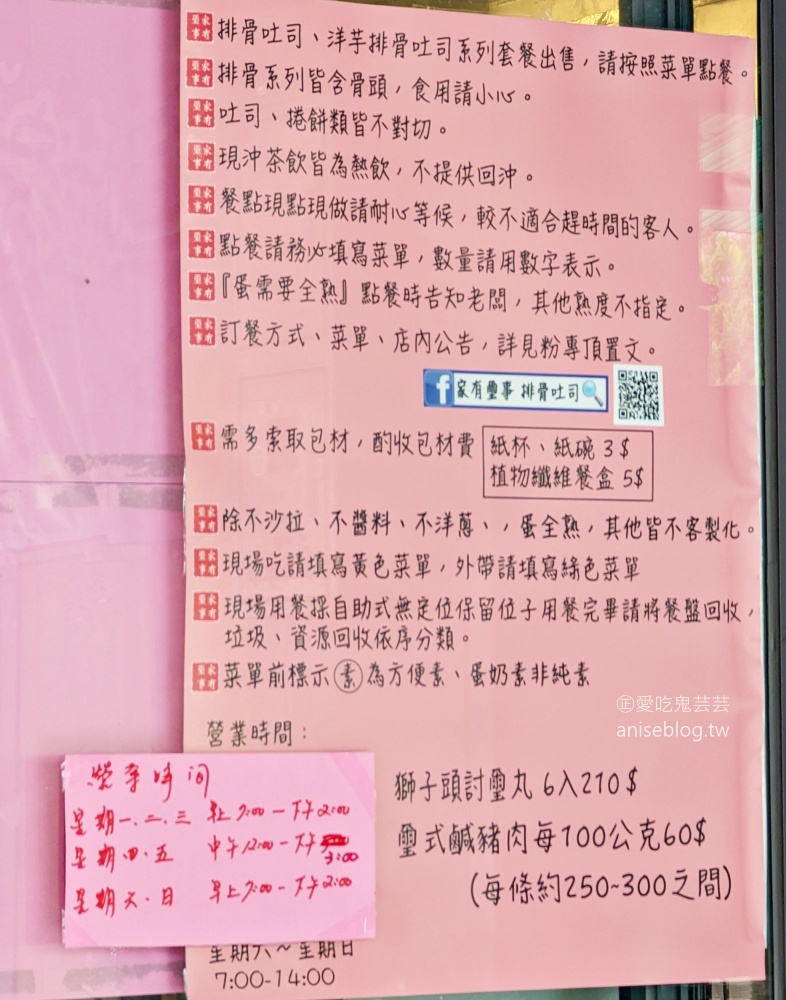 排骨吐司、洋芋排骨吐司系列套餐出售，請按照菜單點餐。
排骨系列皆含骨頭，食用請小心。
吐司、捲餅類皆不對切。
現沖茶飲皆為熱飲，不提供回沖。
餐點現點現做請耐心等候，較不適合趕時間的客人。
點餐請務必填寫菜單，數量請用數字表示。
『蛋需要全熟』點餐時告知老闆，其他熟度不指定。
訂餐方式、菜單、店內公告，詳見粉專頂置文。
f 家有璽事 排骨吐司
需多索取包材，酌收包材費
紙杯、紙碗 3$
植物纖維餐盒 5$
除不沙拉、不醬料、不洋蔥、，蛋全熟，其他皆不客製化。
現場吃請填寫黃色菜單，外帶請填寫綠色菜單
現場用餐採自助式無定位保留位子用餐完畢請將餐盤回收，
垃圾、資源回收依序分類。
菜單前標示素為方便素、蛋奶素非純素
㊣愛吃鬼芸芸
aniseblog.tw
營業時間：
营業時间
星期一.二.三 早上7:00-下午2:00
星期四.五 中午12:00-下午3:00
星期六.日 早上7:00-下午2:00
星期六~星期日
7:00-14:00
獅子頭討璽丸 6入210$
璽式鹹豬肉每100公克60$
(每條約250~300之間)